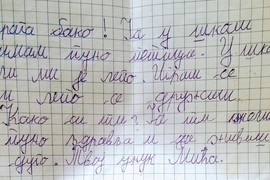 рага бако! Ја у школи
имам пуно петица. У шко
ли ми је лепо. Играм се
и лепо се дружим.
Како си ти? Ја ти желим
пуно здравља и да живиш
дуго. Твој унук Мића.